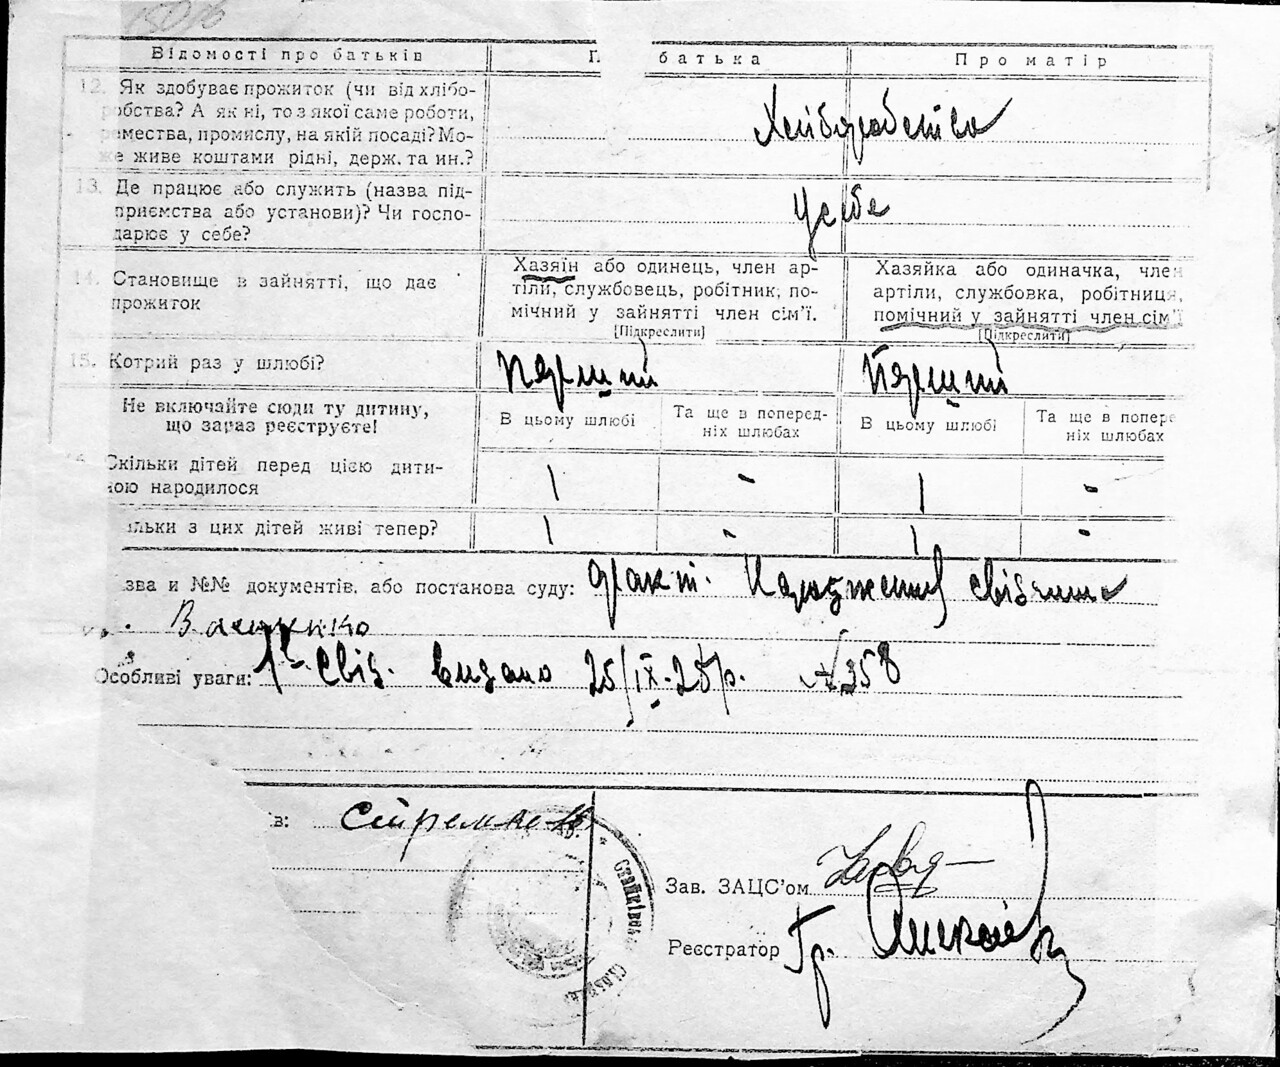 15016
Відомості про батьків П батька Про матір
12. Як здобуває прожиток (чи від хлібо-
робства? А як ні, то з якої саме роботи,
ремества, промислу, на якій посаді? Мо-
же живе коштами рідні, держ. та ин.?
Хліборобство
13. Де працює або служить (назва під-
приємства або установи)? Чи госпо-
дарює у себе?
У себе
14. Становище в зайнятті, що дає
прожиток
Хазяїн або одинець, член ар-
тіли, службовець, робітник, по-
мічний у зайнятті член сім'ї.
[Підкреслити]
Хазяйка або одиначка, член
артіли, службовка, робітниця,
помічний у зайнятті член сім'ї
[Підкреслити]
15. Котрий раз у шлюбі? Перший Перший
Не включайте сюди ту дитину,
що зараз реєструєте!
В цьому шлюбі
Та ще в поперед-
ніх шлюбах
В цьому шлюбі
Та ще в попере
ніх шлюбах
Скільки дітей перед цією дити-
ною народилося
1 - 1 -
льки з цих дітей живі тепер?
1 - 1 -
зва и №№ документів, або постанова суду: факт. Народження свідчить
Ващенко
Особливі уваги: Свід. видано 25/IX-28р. №358
в:
Зав. ЗАЦС'ом
Реєстратор Гр.